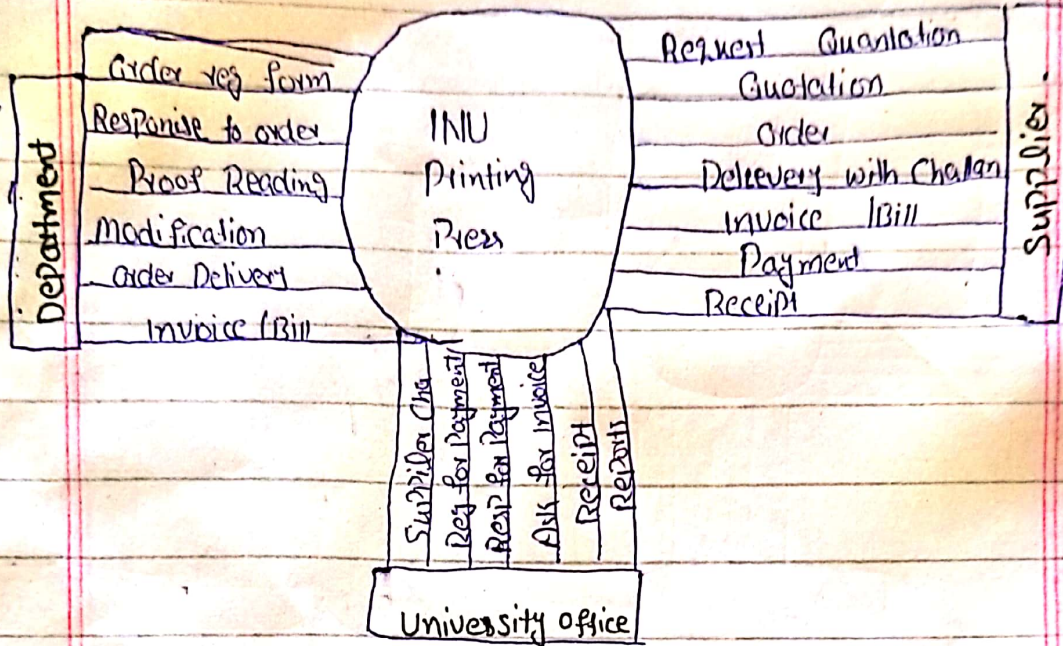 Department
Order reg form
Responise to order
Proof Reading
Modification
Order Delivery
Invoice /Bill
INU
Printing
Press
Request Quanlation
Quotation
Order
Delievery with Challan
Invoice /Bill
Payment
Receipt
Supplier
Suppiler Cha
Req for Payment
Resp for Payment
Ask for Invoice
Receipt
Reports
University office